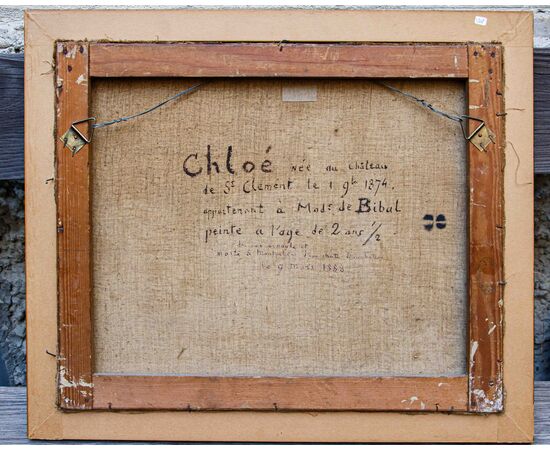 Chloé née au château
de St Clément le 1 9bre 1874.
appartenant à Made de Bibal
peinte a l'age de 2 ans 1/2 -
morte à Montpellier d'une chute
le 9 Mars 1888